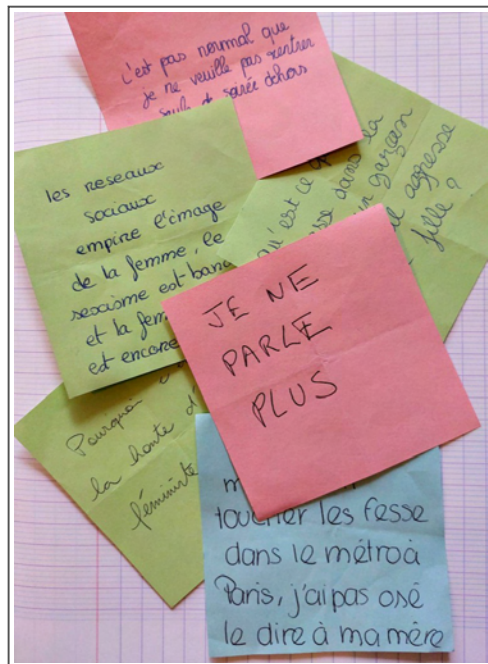 c'est pas normal que
je ne veuille pas rentrer
seule de soirée dehors
les reseaux
sociaux
empire l'image
de la femme, le
sexisme est
et la
est encore
qu'est ce
dans la
un garçon
aggresse
fille ?
JE NE
PARLE
PLUS
Pourquoi
la honte
féministe
toucher les fesse
dans le métro à
Paris, j'ai pas osé
le dire à ma mère